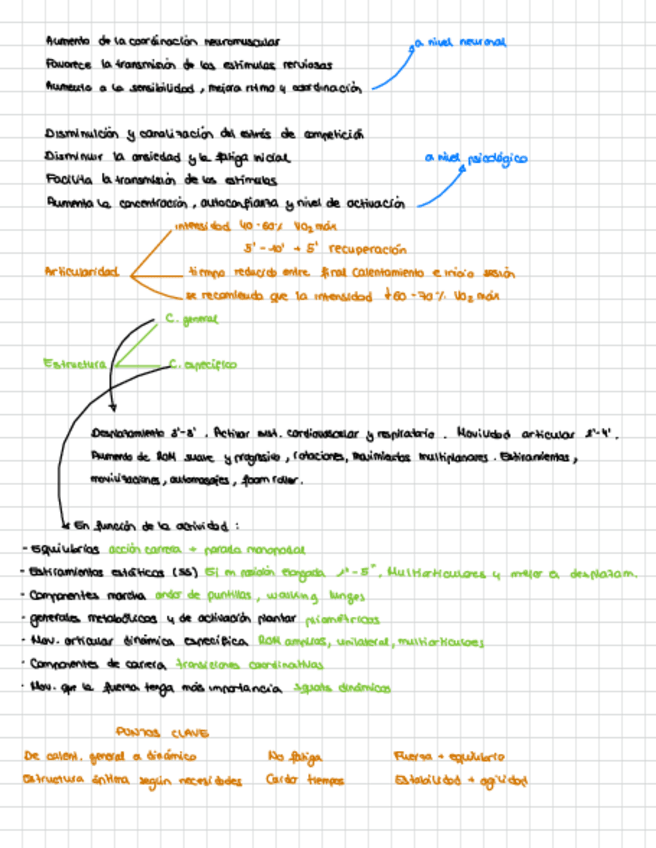 Aumento de la coordinación neuromuscular
a nivel neuronal
Favorece la transmisión de los estímulos nerviosos
Aumento a la sensibilidad, mejora ritmo y coordinación
Disminución y canalización del estrés de competición
Disminuir la ansiedad y la fatiga inicial
a nivel psicológico
Facilita la transmisión de los estímulos
Aumenta la concentración, autoconfianza y nivel de activación
intensidad 40-60% VO2 máx
5' - 10' + 5' recuperación
Articularidad
tiempo reducido entre final calentamiento e inicio sesión
se recomienda que la intensidad ↓60-70% VO2 máx
C. general
Estructura
C. específico
Desplazamiento 3'-8'. Activar sist. cardiovascular y respiratorio. Movilidad articular 2'-4'.
Aumento de ROM suave y progresivo, rotaciones, movimientos multiplanares. Estiramientos,
movilizaciones, automasajes, foam roller.
En función de la actividad:
- Equilibrios acción carrera + parada monopodal
- Estiramientos estáticos (SS) Si en posición elongada 1"-5", Multiarticulares y mejor a desplazam.
- Componentes marcha andar de puntillas, walking lunges
- generales metabólicos y de activación plantar
- Mov. articular dinámica específica ROM amplios, unilateral, multiarticulares
- Componentes de carrera transiciones coordinativas
- Mov. que la fuerza tenga más importancia squats dinámicos
PUNTOS CLAVE
De calent. general a dinámico No fatiga Fuerza + equilibrio
Estructura óptima según necesidades Cardar tiempos Estabilidad + agilidad